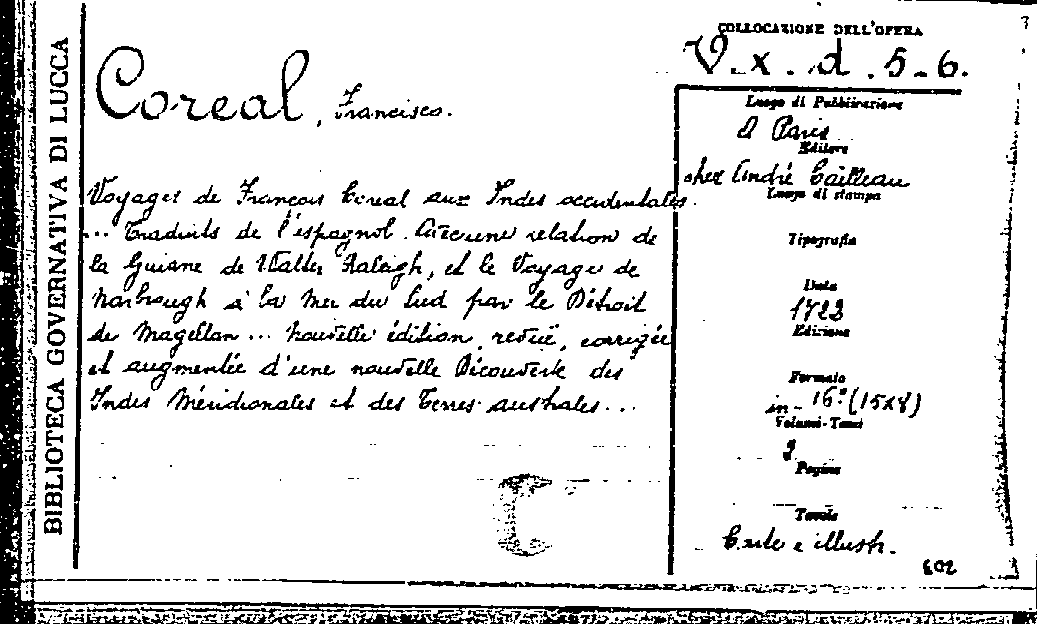 BIBLIOTECA GOVERNATIVA DI LUCCA
Coreal, Francisco.
Voyages de François Coreal aux Indes occidentales.
... Traduits de l'espagnol. Avec une relation de
la Guiane de Walter Raleigh, et le Voyage de
Narbrough à la Mer du Sud par le Détroit
de Magellan ... Nouvelle édition, revuë, corrigée
et augmentée d'une nouvelle Découverte des
Indes Méridionales et des Terres australes ...
COLLOCAZIONE DELL'OPERA
V. x. d. 5-6.
Luogo di Pubblicazione
A Paris
Editore
chez André Cailleau
Luogo di stampa
Tipografia
Data
1722
Edizione
Formato
in-16° (15x8)
Volumi-Tomi
Pagine
Tavole
Carte e illustr.
602
C